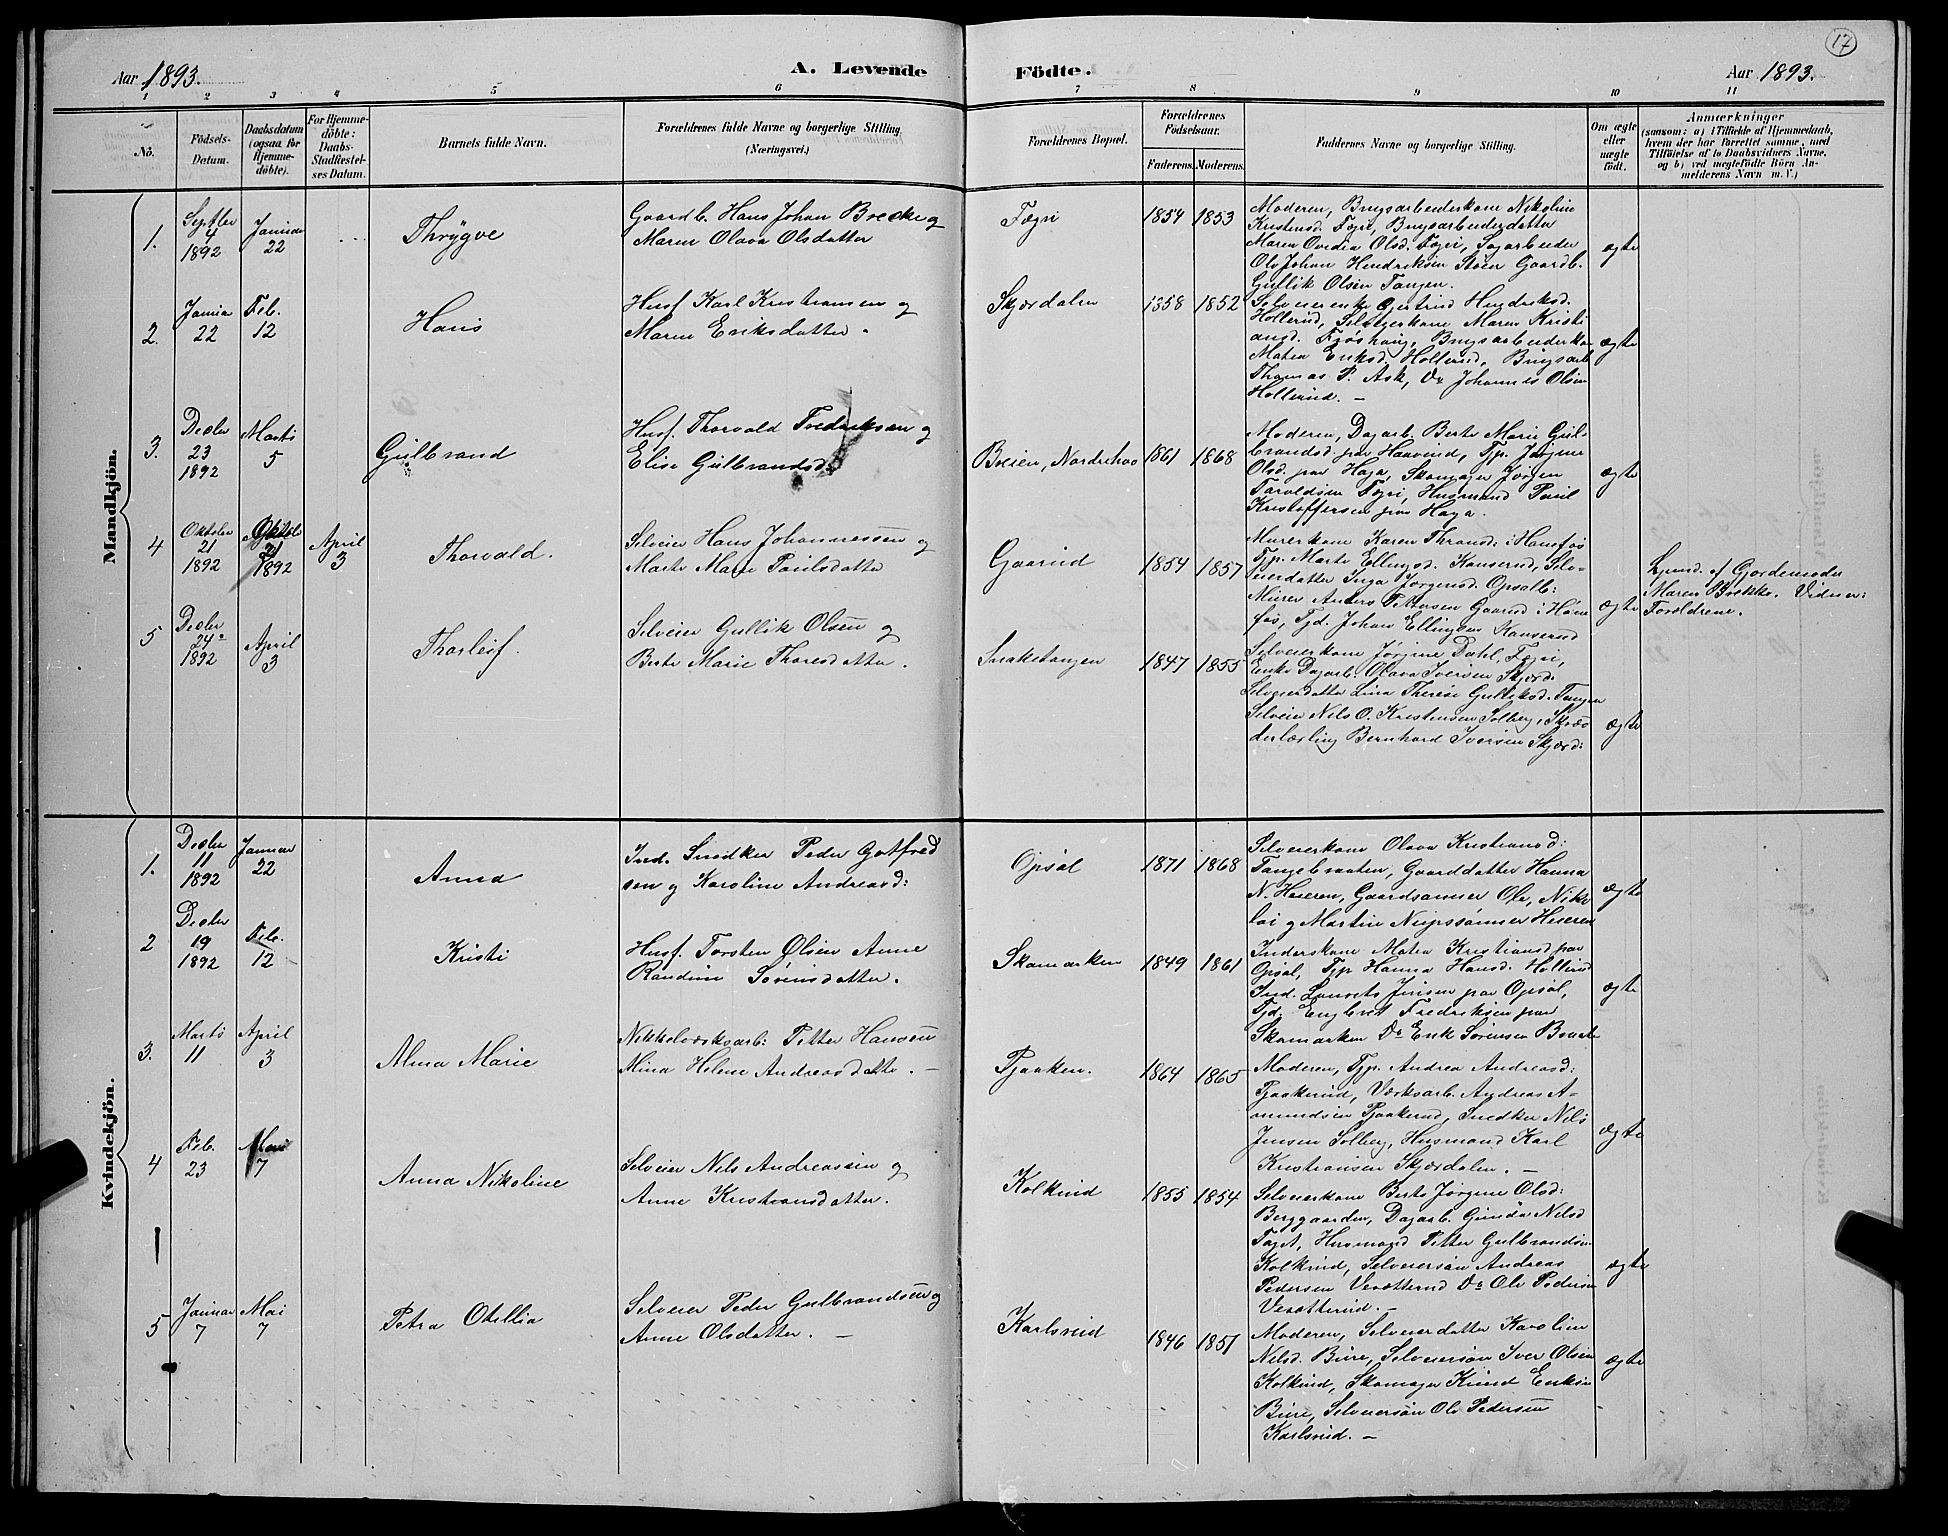 17
Aar 1893.
A. Levende Födte.
Aar 1893.
1 2 3 4 5 6 7 8 9 10 11
No.
Födsels-Datum.
Daabsdatum (ogsaa for Hjemme-döbte).
For Hjemme-döbte: Daabs-Stadfæstel-ses Datum.
Barnets fulde Navn.
Forældrenes fulde Navne og borgerlige Stilling (Næringsvei.)
Forældrenes Bopæl.
Forældrenes Födselsaar.
Faderens. Moderens.
Faddernes Navne og borgerlige Stilling.
Om ægte eller uægte födt.
Anmærkninger
(saasom: a) i Tilfælde af Hjemmedaab, hvem der har forrettet samme, med Tilföielse af to Daabsvidners Navne, og b) ved uægtefödte Börn An-melderens Navn m. V.)
Mandkjön.
1.
Septber 4 1892
Januar 22
Thrygve
Gaardb. Hans Johan Brecke og
Maren Olava Olsdatter
Fægri
1854 1853
Moderen, Brugsarbeiderkone Nikoline
Kristensd. Fægri, Brugsarbeiderdatter
Maren Ovedia Olsd. Fægri, Sagarbeider
Ole Johan Hendriksen Støen Gaardb.
Gullik Olsen Tangen.
ægte
2.
Januar 22
Feb. 12
Hans
Husf. Karl Kristiansen og
Maren Eriksdatter.
Skjærdalen
1858 1852
Selveierenke Gjertrud Hendriksd.
Hollerud, Selveierkone Maren Kristi
ansd. Frøshaug, Brugsarbeiderko
Matea Eriksd. Hollerud, Brugsarb
Thomas P. Ask, Do Johannes Olsen
Hollerud. —
ægte
3.
Decbr 23 1892
Marts 5
Gulbrand
Husf. Thorvald Fredriksen og
Elise Gulbrandsd.
Breien, Norderhov
1861 1868
Moderen, Dagarb. Berte Marie Gul-
brandsd. paa Haaverud, Tjp. Jørgine
Olsd. paa Haga, Skomager Jørgen
Taraldsen Fægri, Husmand Paul
Kristoffersen paa Haga.
ægte
4
Oktober 21 1892
Oktob 21 1892
April 3
Thorvald.
Selveier Hans Johannessen og
Marte Marie Paulsdatter
Gaarud
1854 1857
Murerkone Karen Thrands: i Hønefos
Tjp. Marte Ellingsd. Kanserud, Selv-
eierdatter Inga Jørgensd. Opsalb:
Murer Anders Pettersen Gaarud i Høne
fos, Tjd. Johan Ellingsen Kanserud
ægte
Hjemd. af Gjordemoder
Maren Brekke. Vidner:
Forældrene.
5
Decbr 24 1892
April 3
Thorleif.
Selveier Gullik Olsen og
Berte Marie Thoresdatter.
Snaketangen
1847 1855
Selveierkone Jørgine Dahl, Fægri,
Enke Dagarb. Olava Iversen Skjærd.
Selveierdatter Lina Therese Gulliksd. Tangen
Selveier Nils O. Kristensen Solberg, Skræd
derlærling Bernhard Iversen Skjærd:
ægte
Kvindekjön.
1.
Decbr 11 1892
Januar 22
Anna
Ind. Snedker Peder Gotfred
sen og Karoline Andreasd:
Opsal
1871 1868
Selveierkone Olava Kristiansd:
Tangebraaten, Gaarddatter Hanna
N. Heseren, Gaardsønner Ole, Niko
lai og Martin Neupssønner Heseren
ægte
2
Decbr 19 1892
Feb. 12
Kristi
Husf. Torsten Olsen Anne
Randine Sørensdatter.
Skamarken
1849 1861
Inderskone Matea Kristiansd paa
Opsal, Tjp Hanna Hansd. Hollerud
Ind. Laurets Jensen paa Opsal,
Tjd. Engbret Fredriksen paa
Skamarken Do Erik Sørensen
ægte
3.
Marts 11
April 3
Alma Marie
Nikkelværksarb: Petter Hansen
Mina Helene Andreasdatter. —
Pjaaken.
1864 1865
Moderen, Tjp. Andrea Andreasd:
Pjaakerud, Værksarb. Andreas A-
mundsen Pjaakerud, Snedker Nils
Jensen Solberg, Husmand Karl
Kristiansen Skjærdalen. —
ægte
4
Feb. 23
Mai 7
Anna Nikoline
Selveier Nils Andreassen og
Anne Kristiansdatter.
Kolkind
1855 1854
Selveierkone Berte Jørgine Olsd:
Berggaarden, Dagarb. Gunda Nilsd
Faget, Husmand Petter Gulbrandsen
Kolkind, Selveiersøn Andreas
Pedersen Vesætterud Do Ole Pedersen
Vesætterud. —
ægte
5
Januar 7
Mai 7
Petra Otellia
Selveier Peder Gulbrandsen og
Anne Olsdatter. —
Karlsrud
1846 1851
Moderen, Selveierdatter Karoline
Nilsd. Bure, Selveiersøn Iver Olsen
Kolkind, Skomager Knud Eriksen
Bure, Selveiersøn Ole Pedersen
Karlsrud. —
ægte